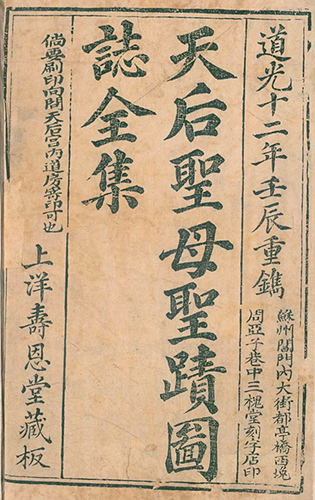 道光十二年壬辰重鐫
蘇州閶門內大街都亭橋西堍
周亞子巷中三槐堂刻字店印
天后聖母聖蹟圖
誌全集
倘要刷印向閶天后宮內道房寄印可也
上洋壽恩堂藏板